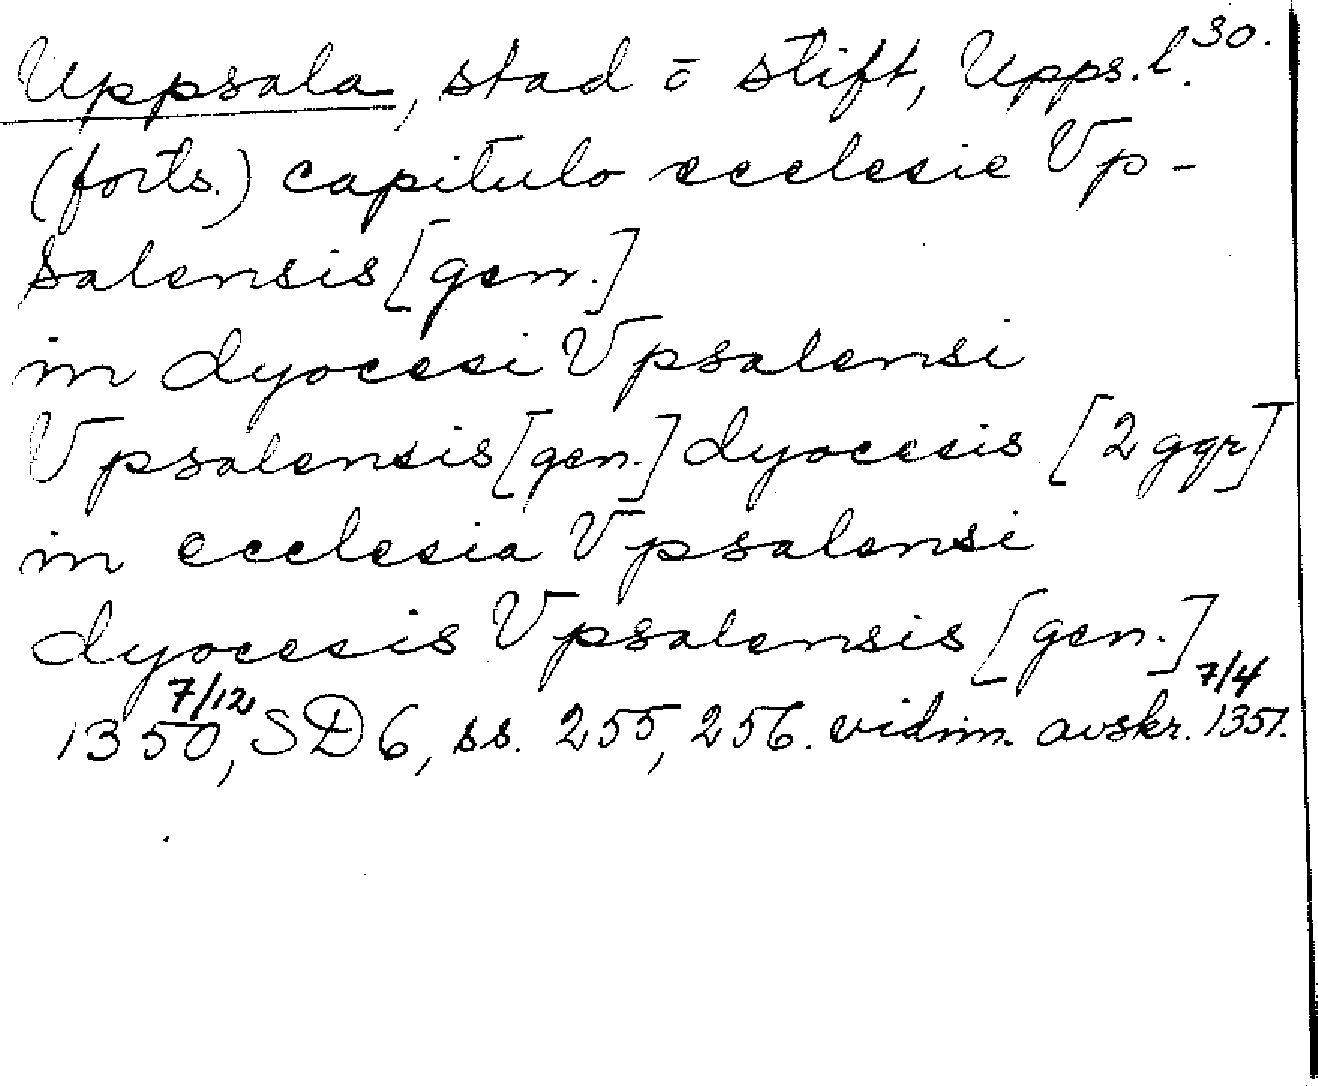 Uppsala, stad o stift, Upps. l. 30.
(forts.) capitulo ecclesie Vp-
salensis [gen.]
in dyocesi Vpsalensi
Vpsalensis [gen.] dyocesis [2 ggr]
in ecclesia Vpsalensi
dyocesis Vpsalensis [gen.]
7/12 1350, SD 6, ss. 255, 256. vidim. avskr. 7/4 1351.